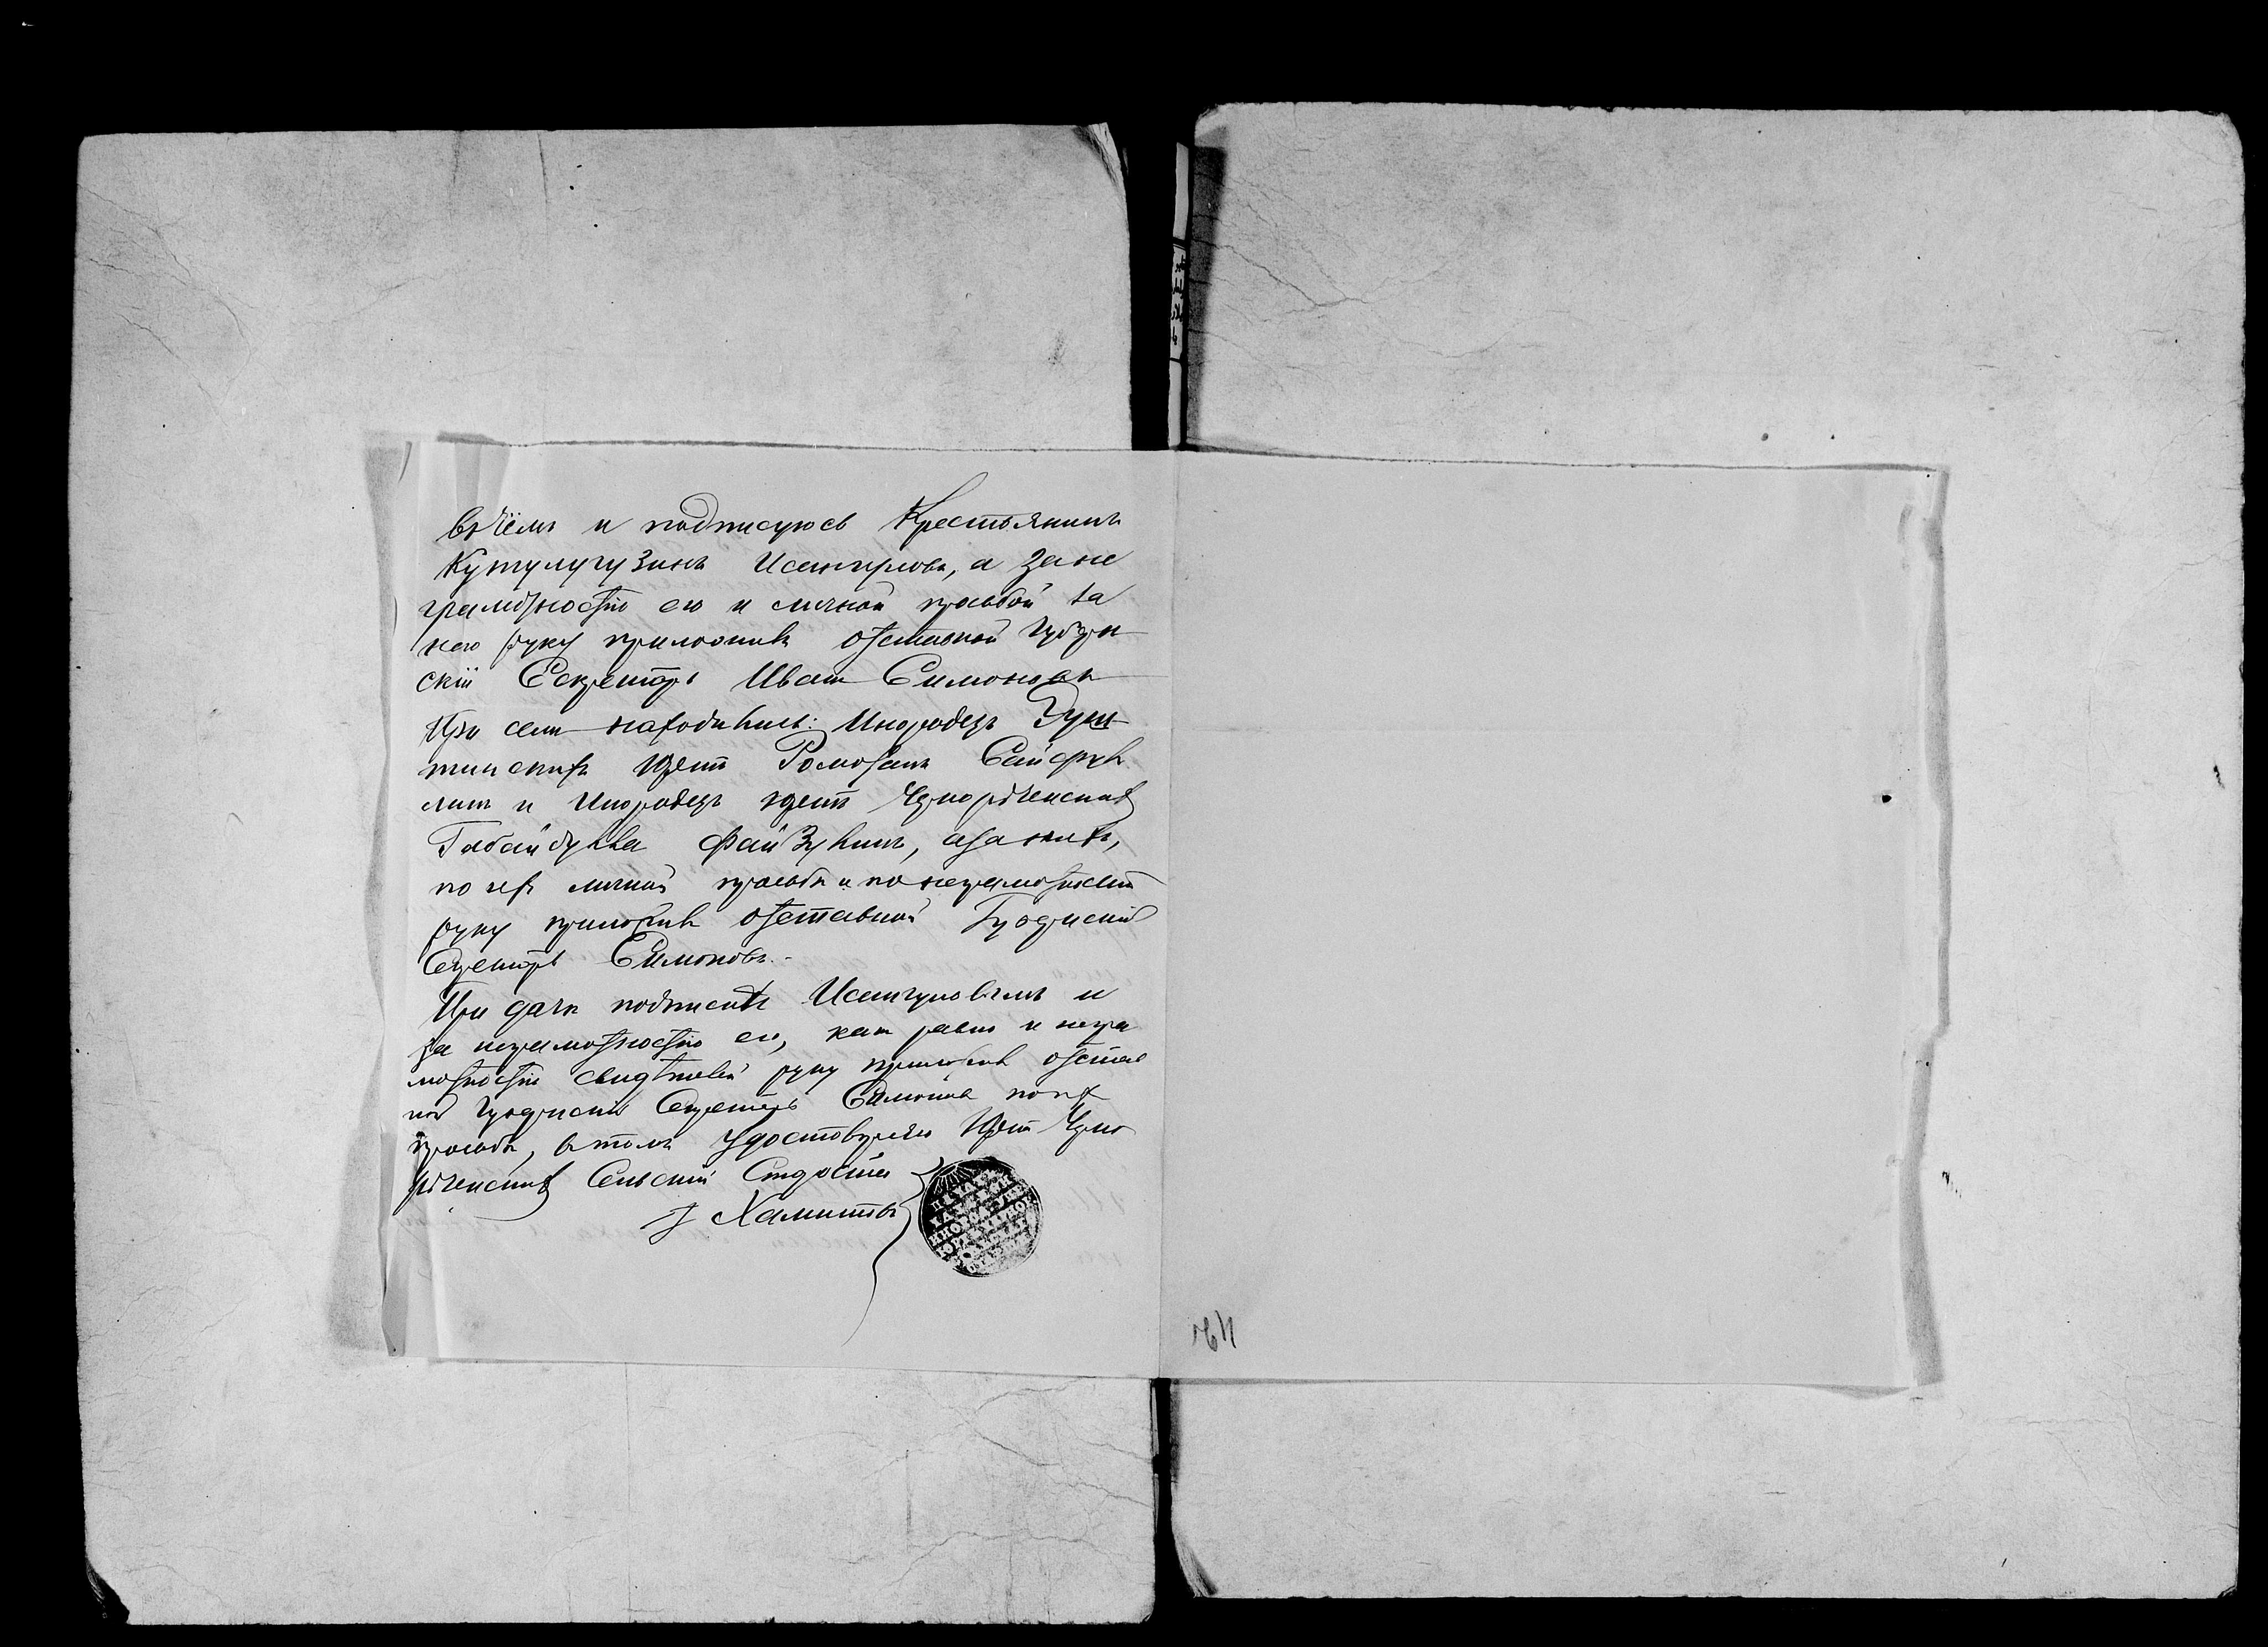 въ чёмъ и подписуюсь Крестьянинъ
Кутулугузинъ Исангуловъ, а за не
грамотностію его и личной прозьбой за
него руку приложилъ отставной Губерн
скій Секретарь Иванъ Симоновъ
При семъ находились: Инородецъ
юртъ Ромозанъ Сайфул
линъ и Инородецъ юртъ Чернорѣченскихъ
Габайдулла Файзулинъ, а за нихъ,
по ихъ личной прозьбѣ и по неграмотности
руку приложилъ отставной Губернскій
Секретарь Симоновъ.
При дачѣ подписки Исангуловымъ и
за неграмотностію его, какъ равно и негра
мотностію свидѣтелей руку приложилъ отстав
ной Губернскій Секретарь Симоновъ по ихъ
прозьбѣ, въ томъ удостовѣряю юртъ Черно
рѣченскихъ Сельскій Староста
Хамитовъ